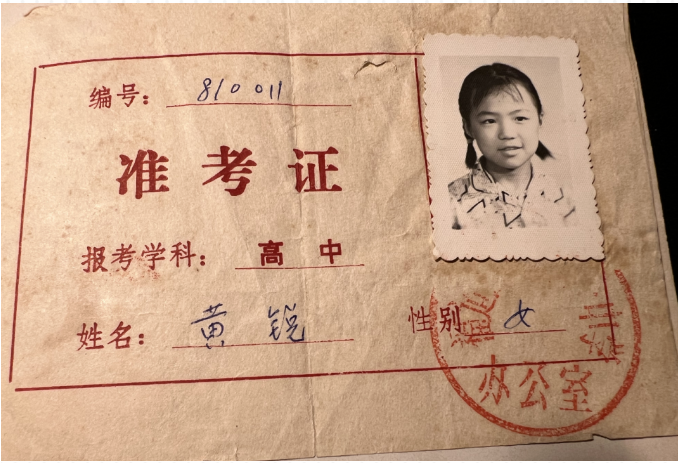 编号：810011
准考证
报考学科：高中
姓名：黄锐 性别 女
办公室